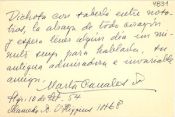 4831
Dichosa con saberlo entre noso-
tros, lo abraza de todo corazón
y espera tener algún día un mi-
nuto para hablarle, su
antigua admiradora e invariable
amiga.
Marta Canales
Agto. 10 de 54